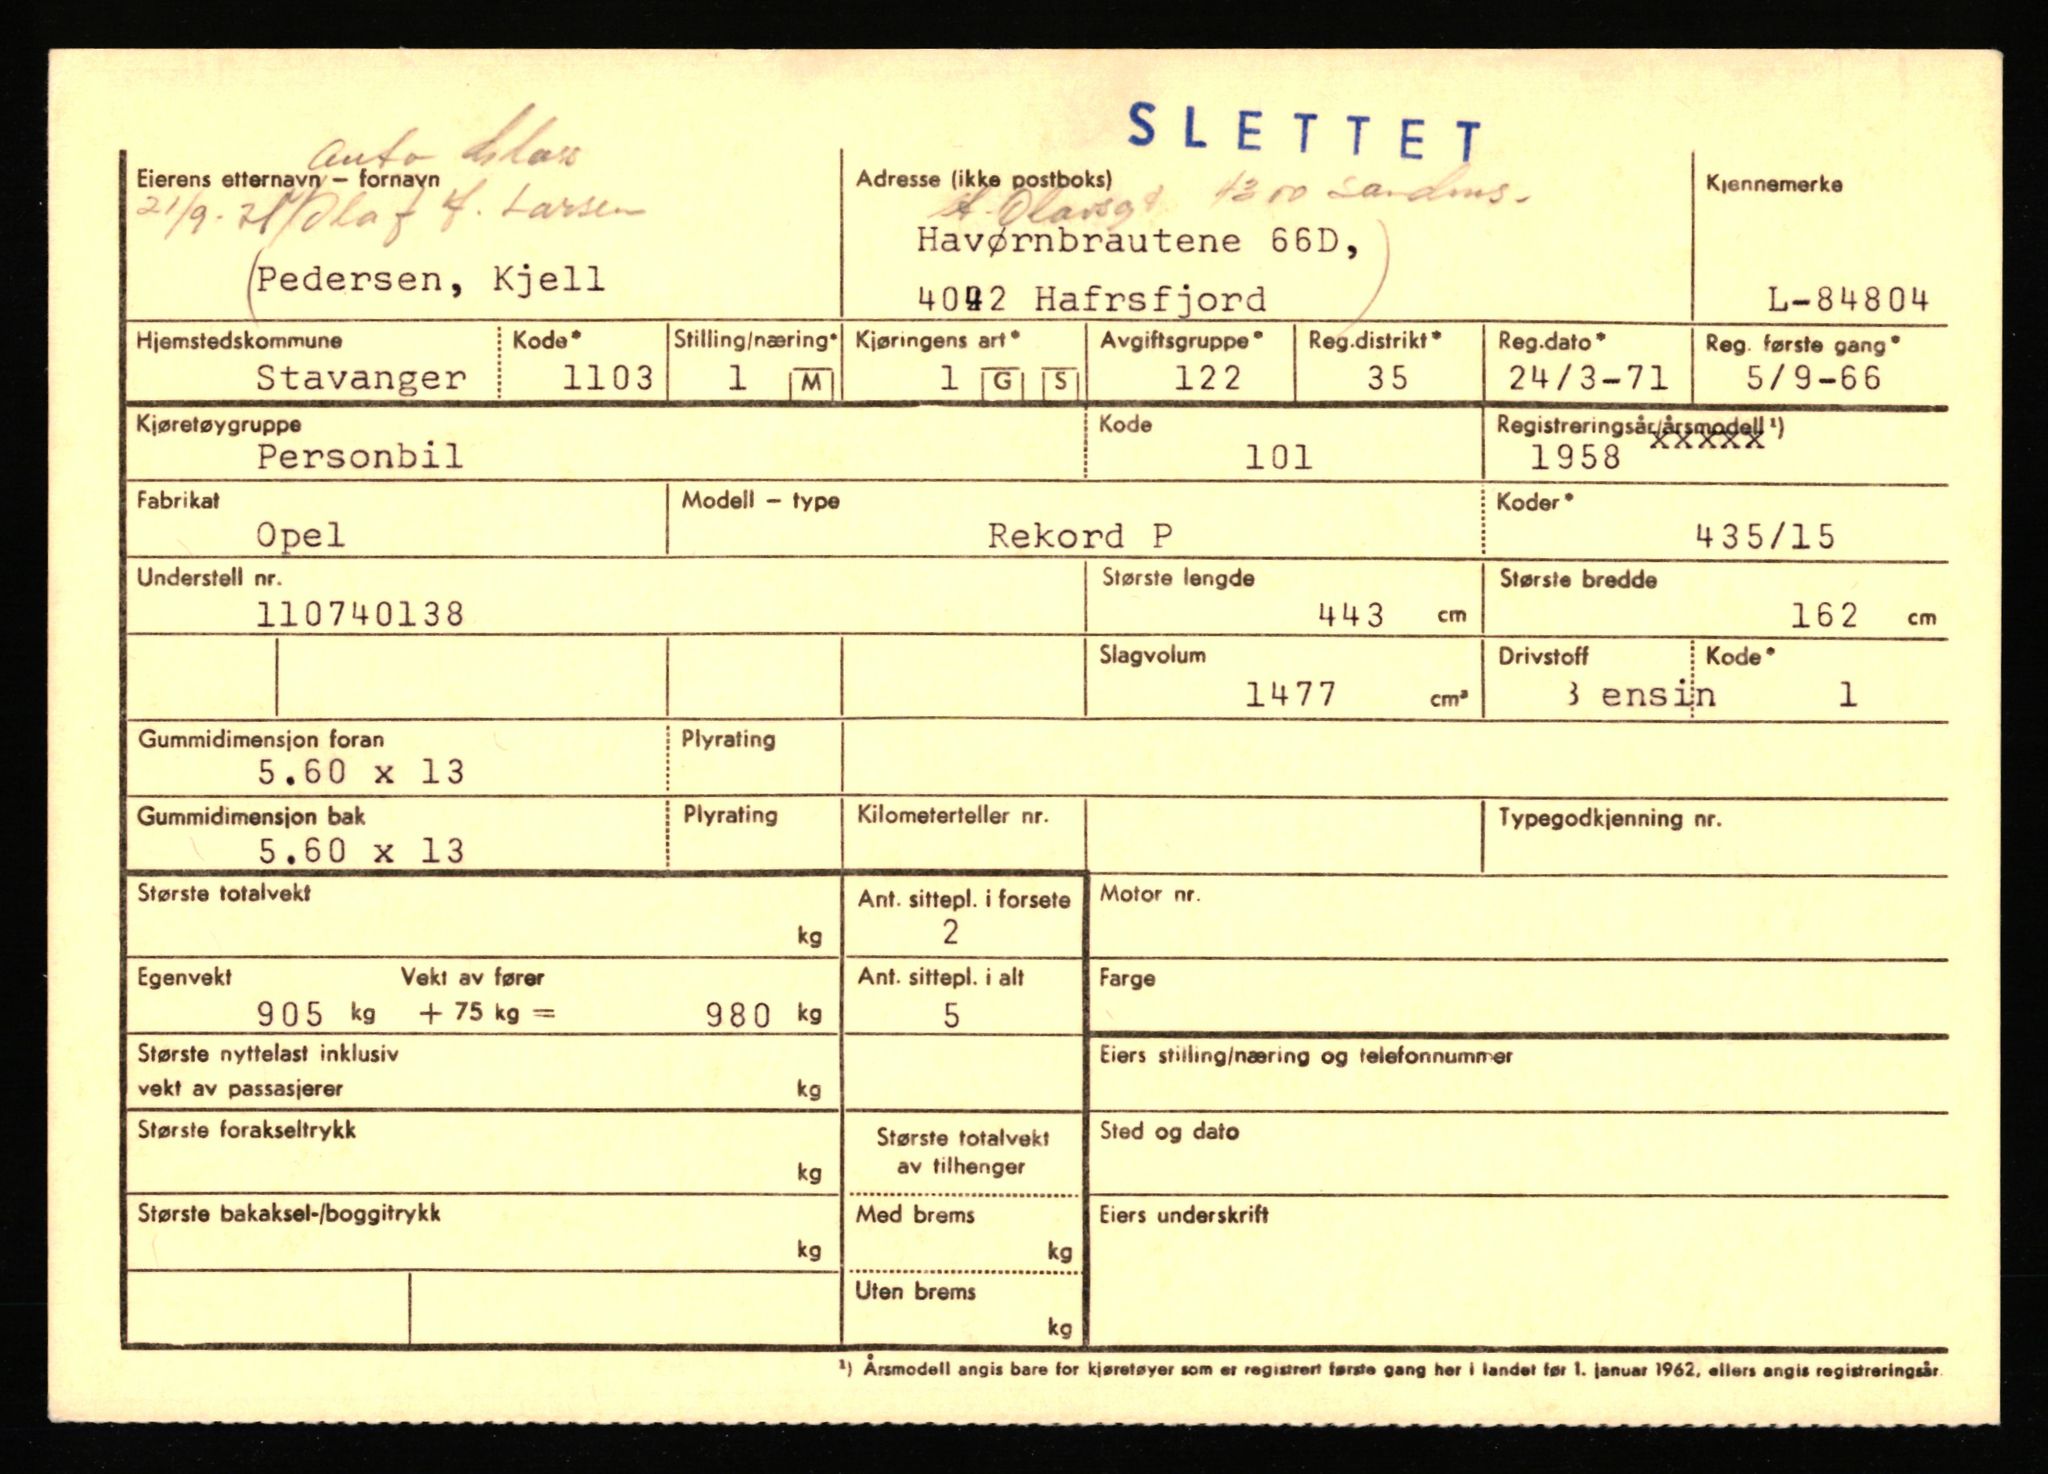 SLETTET
Auto
Eierens etternavn – fornavn
Adresse (ikke postboks)
Kjennemerke
21/9-71 Olaf F. Larsen
St. Olavsgt 4300 Sandnes
Havørnbrautene 66D,
Pedersen, Kjell
4042 Hafrsfjord
L-84804
Hjemstedskommune Kode* Stilling/næring* Kjøringens art* Avgiftsgruppe* Reg.distrikt* Reg.dato* Reg. første gang*
Stavanger 1103 1 M 1 G S 122 35 24/3-71 5/9-66
Kjøretøygruppe Kode Registreringsår/årsmodell ¹)
Personbil 101 1958 xxxxx
Fabrikat Modell – type Koder*
Opel Rekord P 435/15
Understell nr. Største lengde Største bredde
110740138 443 cm 162 cm
Slagvolum Drivstoff Kode*
1477 cm³ Bensin 1
Gummidimensjon foran Plyrating
5.60 x 13
Gummidimensjon bak Plyrating Kilometerteller nr. Typegodkjenning nr.
5.60 x 13
Største totalvekt Ant. sittepl. i forsete Motor nr.
kg 2
Egenvekt Vekt av fører Ant. sittepl. i alt Farge
905 kg + 75 kg = 980 kg 5
Største nyttelast inklusiv Eiers stilling/næring og telefonnummer
vekt av passasjerer kg
Største forakseltrykk Største totalvekt Sted og dato
kg av tilhenger
Største bakaksel-/boggitrykk Med brems Eiers underskrift
kg kg
Uten brems
kg
¹) Årsmodell angis bare for kjøretøyer som er registrert første gang her i landet før 1. januar 1962, ellers angis registreringsår.